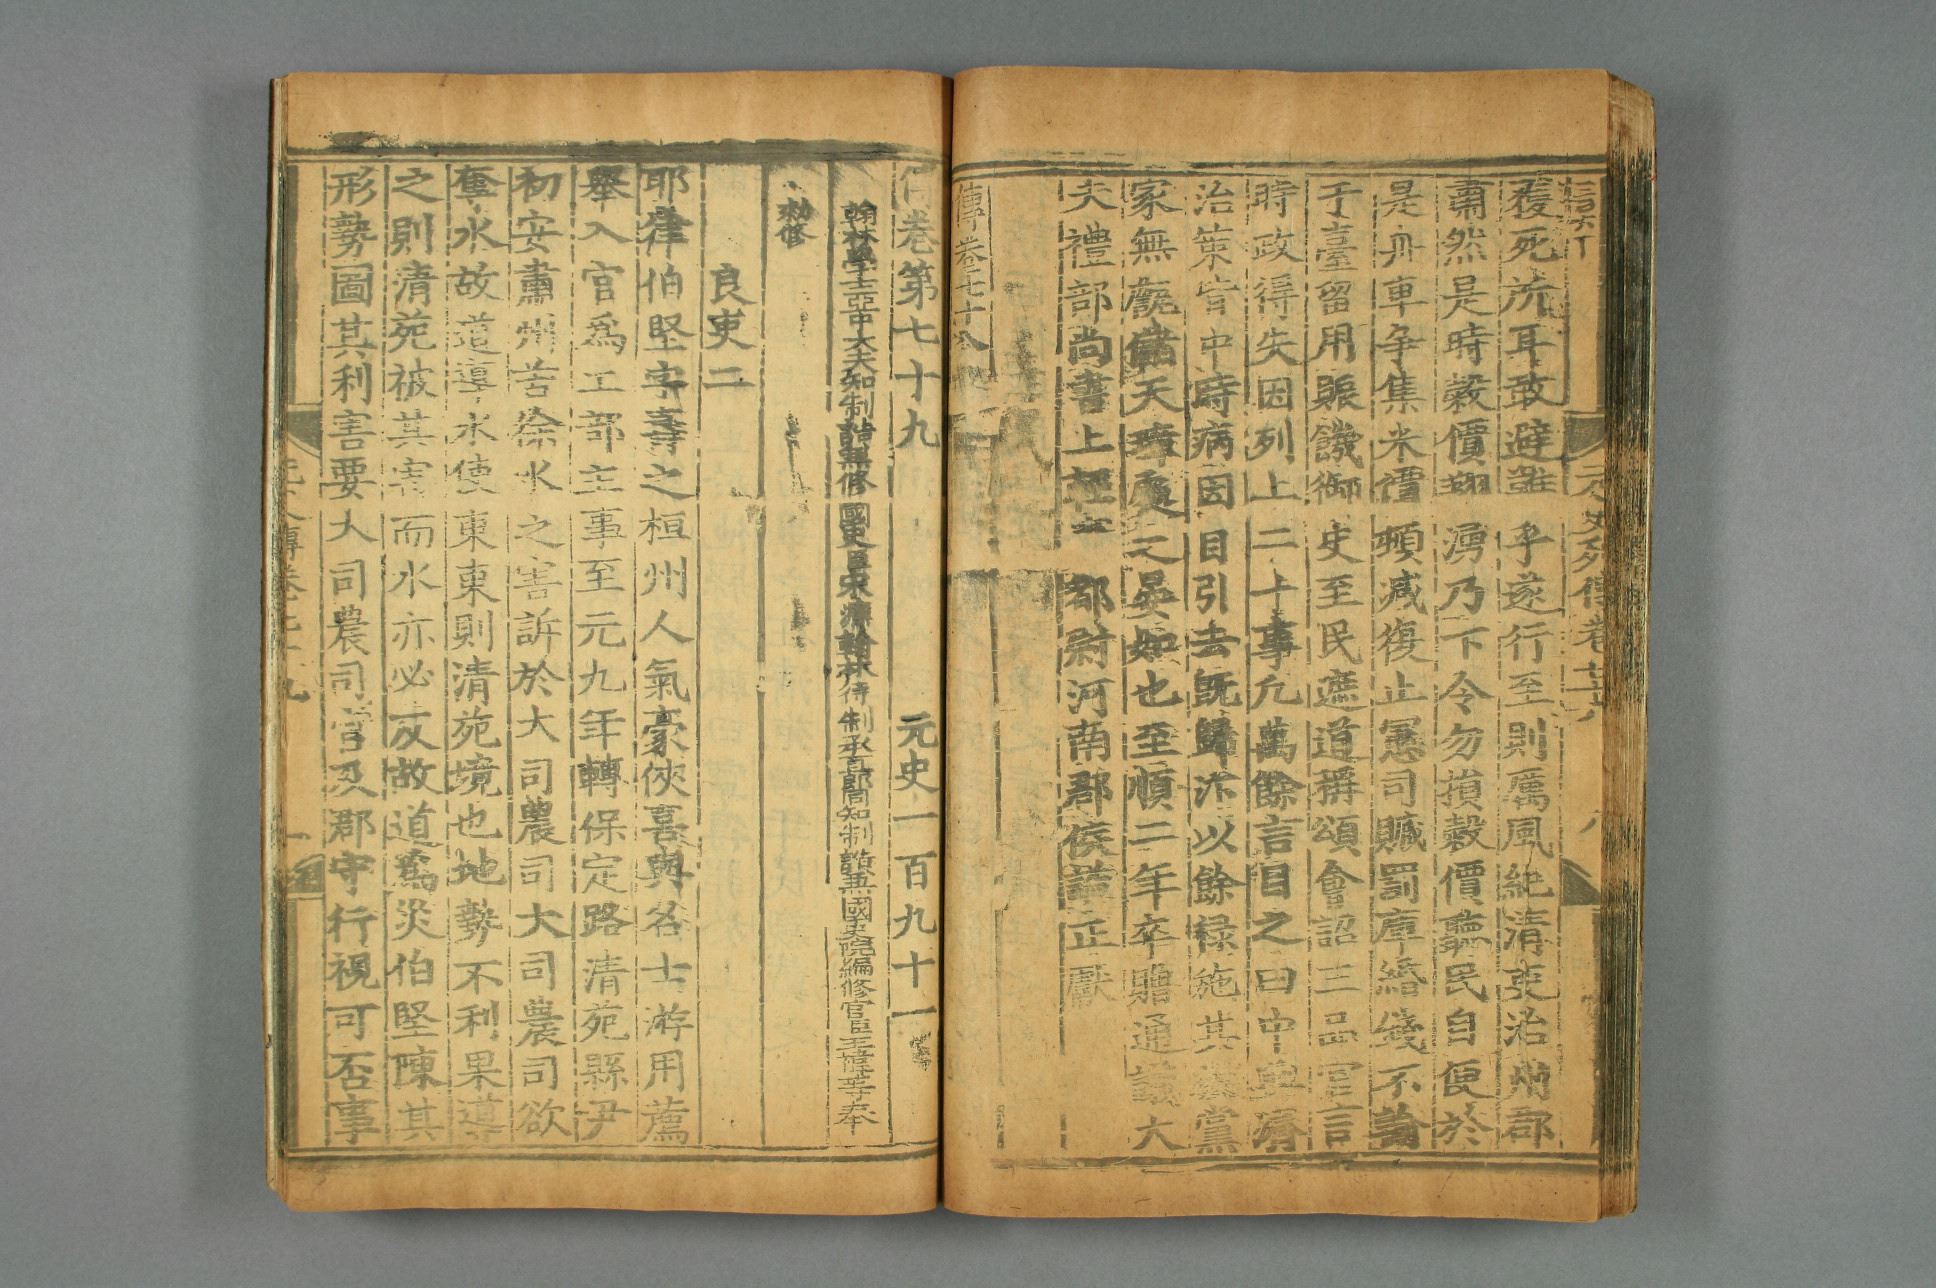 複死流耳敢避難乎遂行至則厲風紀清吏治州郡
肅然是時穀價翔湧乃下令勿損穀價聽民自便於
是舟車争集米價頓减復止憲司贓罰庫緡錢不輸
于臺留用賑饑御史至民遮道稱頌會詔三品官言
時政得失因列上二十事凢萬餘言目之曰中興濟
治策皆中時病因自引去既歸汴以餘禄施其族黨
家無甔儲天𤦺處之晏如也至順二年卒贈通議大
夫禮部尚書上輕車都尉河南郡侯謚正獻
傳卷七十八
元史列傳卷七十八 八
傳卷第七十九 元史一百九十一
翰林學士亞中大夫知制誥兼修國史臣宋濂翰林待制承直郎同知制誥兼國史院編修官臣王禕等奉
勑修
良吏二
耶律伯堅字壽之桓州人氣豪俠喜與名士游用薦
舉入官爲工部主事至元九年轉保定路清苑縣尹
初安肅州苦徐水之害訴於大司農司大司農司欲
奪水故道導水使東東則清苑境也地勢不利果導
之則清苑被其害而水亦必反故道爲災伯堅陳其
形勢圖其利害要大司農司官及郡守行視可否事
元史傳卷七十九 一